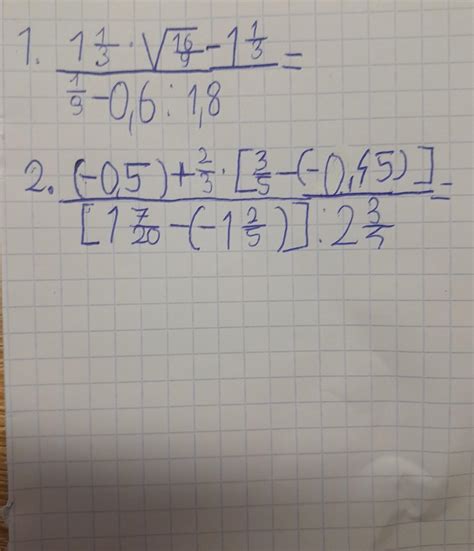 1. 1 1/3 · √16/9 - 1 1/3 =
1/9 - 0,6 : 1,8
2. (-0,5) + 2/3 · [3/5 - (-0,45)] =
[1 7/20 - (-1 2/5)] : 2 3/